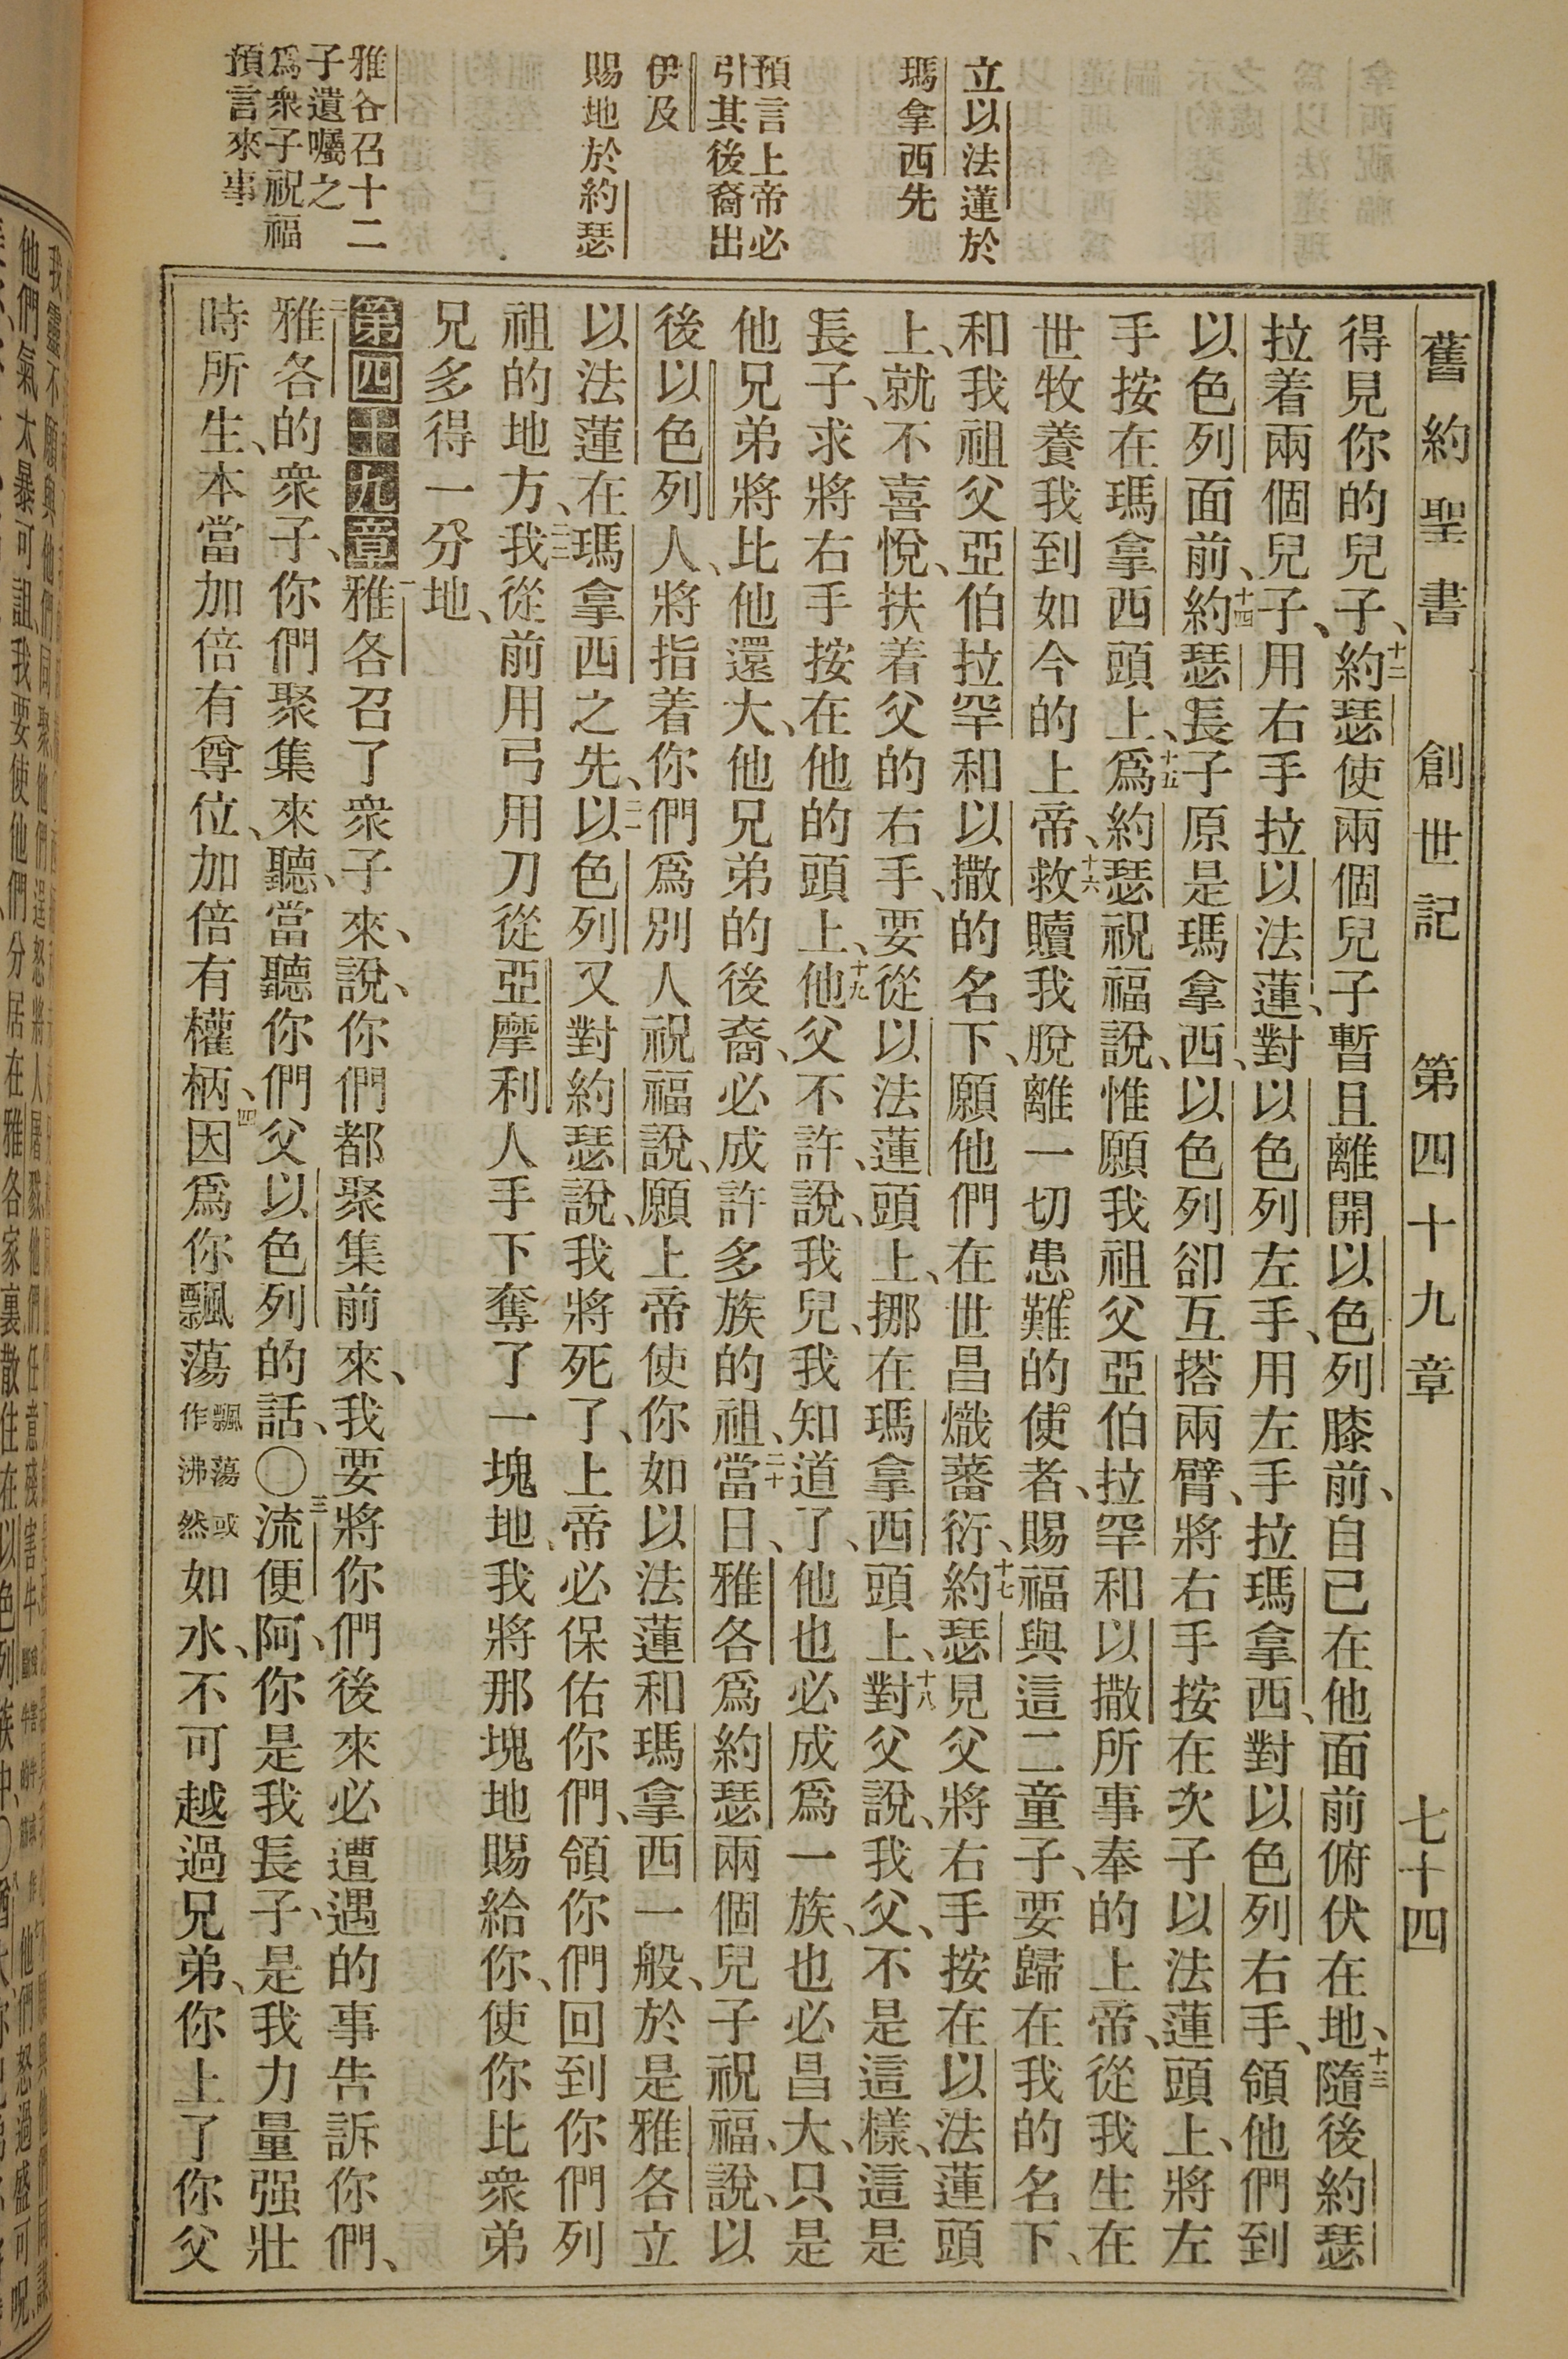 舊約聖書 創世記 第四十九章 七十四
立以法蓮於
瑪拿西先
預言上帝必
引其後裔出
伊及
賜地於約瑟
雅各召十二
子遺囑之
爲衆子祝福
預言來事
得見你的兒子、十二約瑟使兩個兒子暫且離開以色列膝前、自己在他面前俯伏在地、十三隨後約瑟
拉着兩個兒子、用右手拉以法蓮、對以色列左手、用左手拉瑪拿西、對以色列右手、領他們到
以色列面前、十四約瑟長子原是瑪拿西、以色列卻互搭兩臂、將右手按在次子以法蓮頭上、將左
手按在瑪拿西頭上、十五爲約瑟祝福說、惟願我祖父亞伯拉罕和以撒所事奉的上帝、從我生在
世牧養我到如今的上帝、十六救贖我脫離一切患難的使者、賜福與這二童子、要歸在我的名下、
和我祖父亞伯拉罕和以撒的名下、願他們在世昌熾蕃衍、十七約瑟見父將右手按在以法蓮頭
上、就不喜悅、扶着父的右手、要從以法蓮頭上、挪在瑪拿西頭上、十八對父說、我父、不是這樣、這是
長子、求將右手按在他的頭上、十九他父不許、說、我兒、我知道了、他也必成爲一族、也必昌大、只是
他兄弟將比他還大、他兄弟的後裔、必成許多族的祖、二十當日、雅各爲約瑟兩個兒子祝福、說、以
後以色列人、將指着你們爲別人祝福說、願上帝使你如以法蓮和瑪拿西一般、於是雅各立
以法蓮在瑪拿西之先、二一以色列又對約瑟說、我將死了、上帝必保佑你們、領你們回到你們列
祖的地方、二二我從前用弓用刀從亞摩利人手下奪了一塊地、我將那塊地賜給你、使你比衆弟
兄多得一分地、
第四十九章一雅各召了衆子來、說、你們都聚集前來、我要將你們後來必遭遇的事告訴你們、
二雅各的衆子、你們聚集來聽、當聽你們父以色列的話、〇三流便阿、你是我長子、是我力量强壯
時所生、本當加倍有尊位、加倍有權柄、四因爲你飄蕩飄蕩或作沸然如水、不可越過兄弟、你上了你父